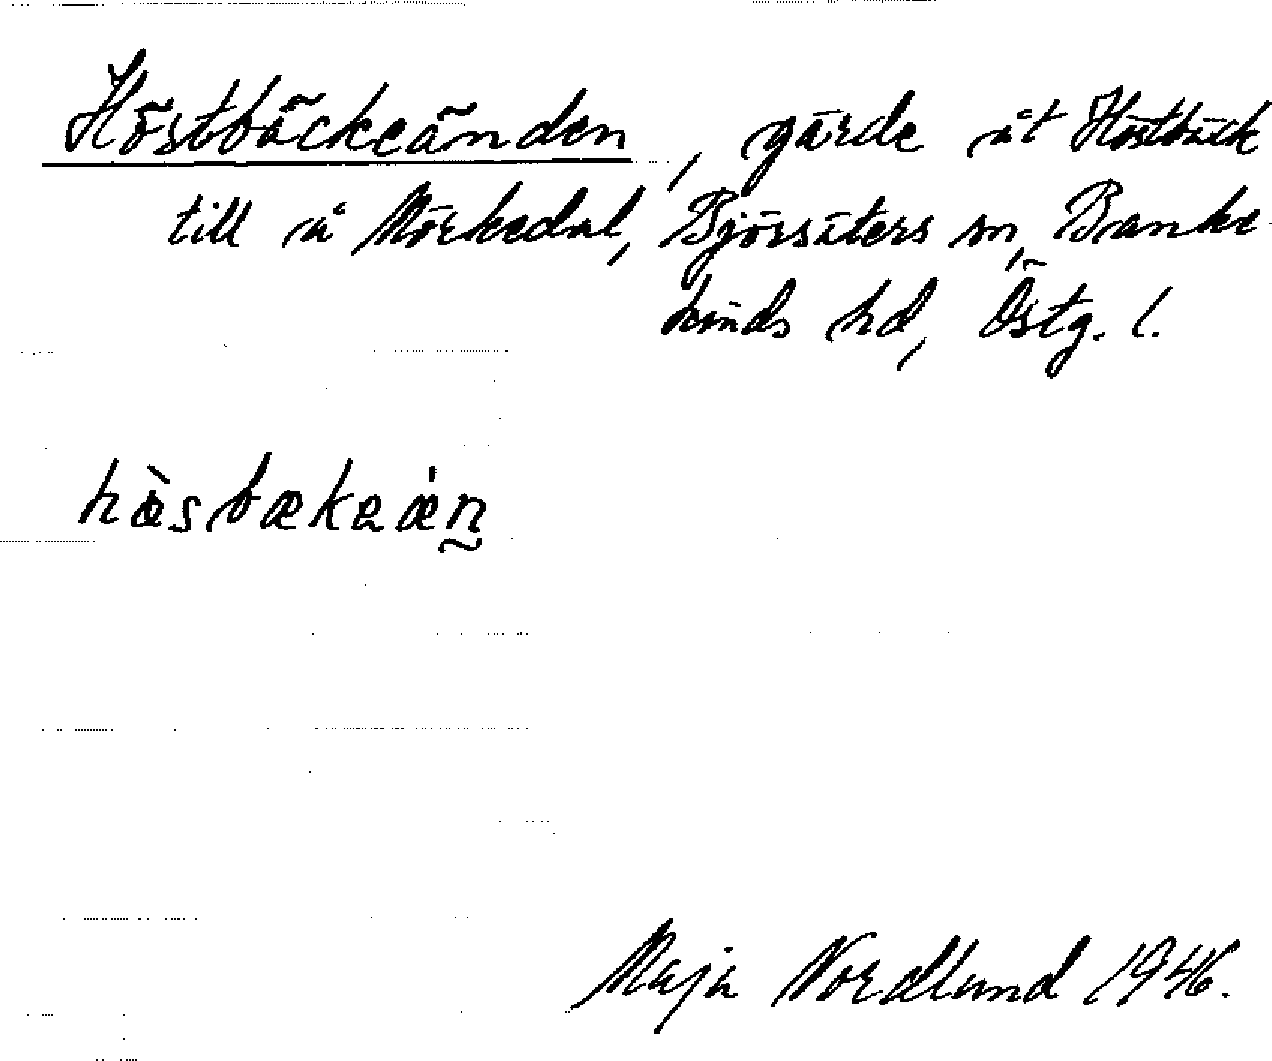 Höstbäckeänden, gärde åt Höstbäck
till å Mörkedal, Björsäters sn, Banke-
kinds hd, Östg. l.
hàsbækeæ̀n̰
Maja Nordlund 1946.